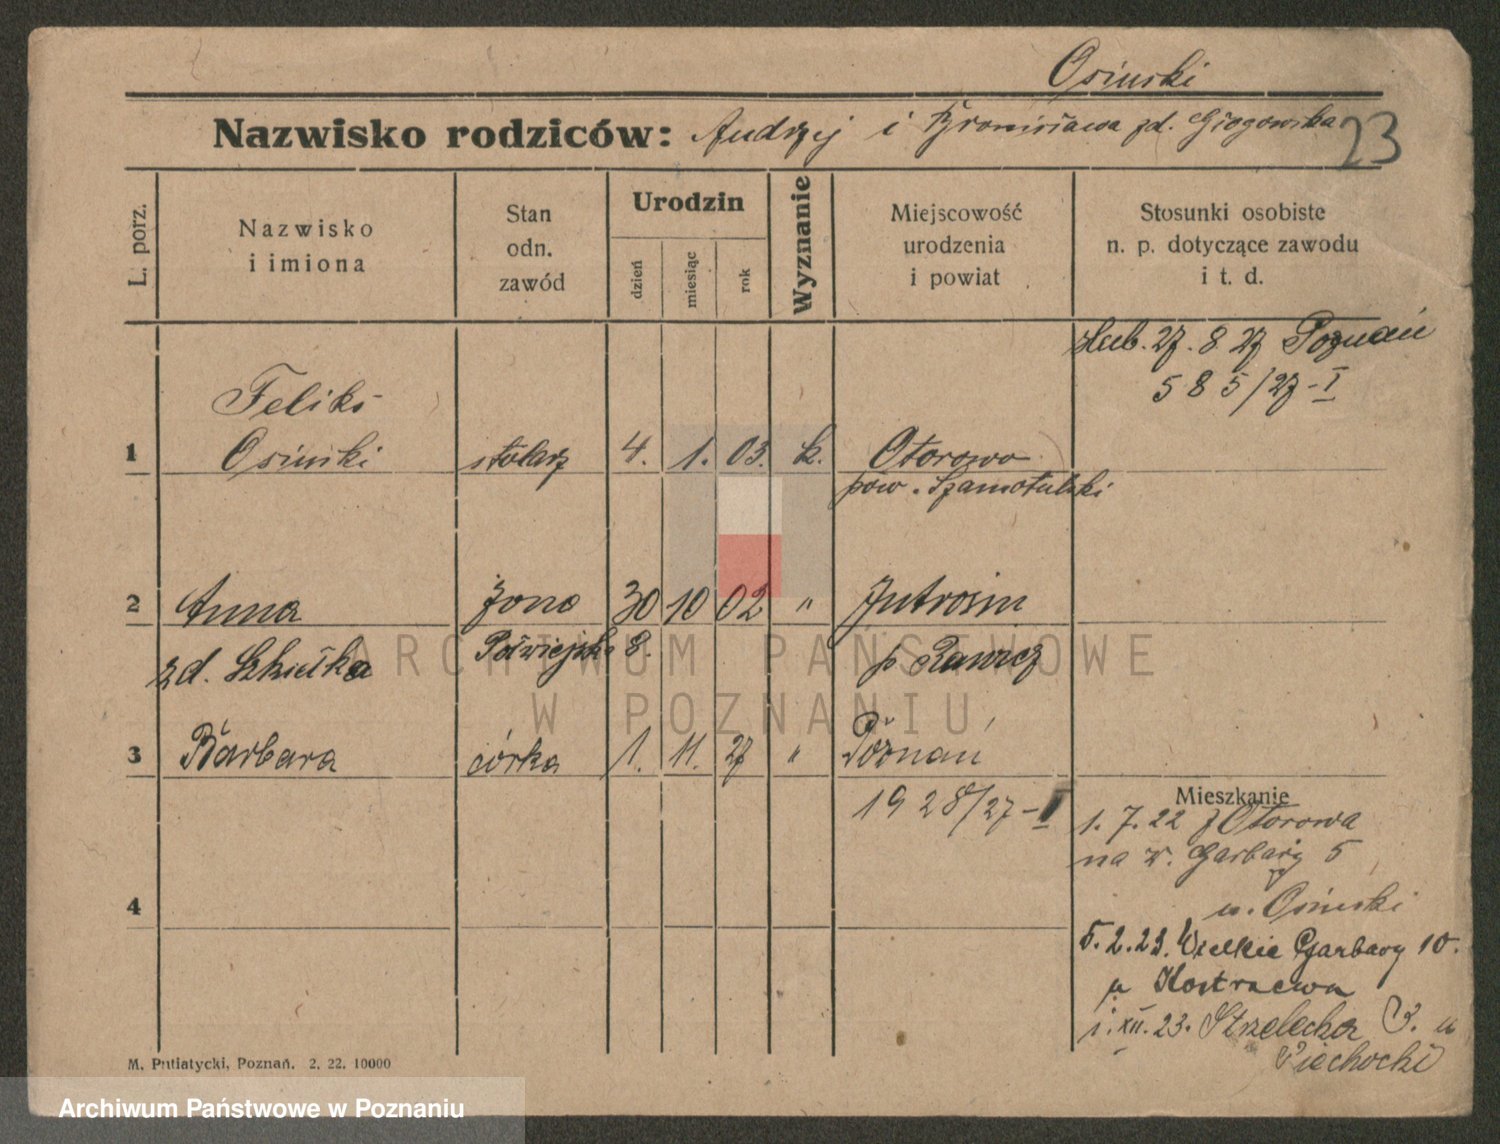 Osinski
Nazwisko rodziców: Andrzej i Bronisława zd. Głogowska
23
L. porz.
Nazwisko
i imiona
Stan
odn.
zawód
Urodzin
dzień
miesiąc
rok
Wyznanie
Miejscowość
urodzenia
i powiat
Stosunki osobiste
n. p. dotyczące zawodu
i t. d.
27. 8 27 Poznań
585/27-I
Feliks
1 Osinski stolarz 4. 1. 03. k. Otorowo
pow. Szamotulski
2 Anna żona 30 10 02 " Jutrosin
zd. Szkiełka Półwiejska 8. p Rawicz
3 Barbara córka 1. 11. 27 " Poznań
1928/27-I
Mieszkanie
1. 7. 22 z Otorowa
na w. Garbary 5
u. Osinski
4
5. 2. 23. Wielkie Garbary 10.
u
1. XII. 23. Strzelecka 3. u
Piechocki
M. Putiatycki, Poznań. 2. 22. 10000
ARCHIWUM PAŃSTWOWE
W POZNANIU
Archiwum Państwowe w Poznaniu